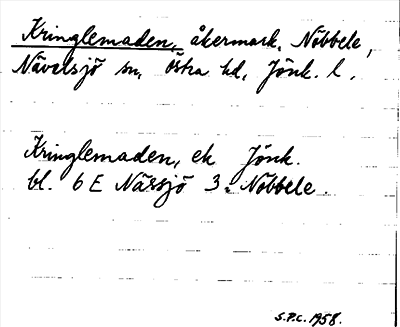 Kringlemaden, åkermark, Nöbbele,
Nävelsjö sn, Östra hd, Jönk. l.
Kringlemaden, ek Jönk.
bl. 6 E Nässjö 3. Nöbbele.
S.P.C. 1958.